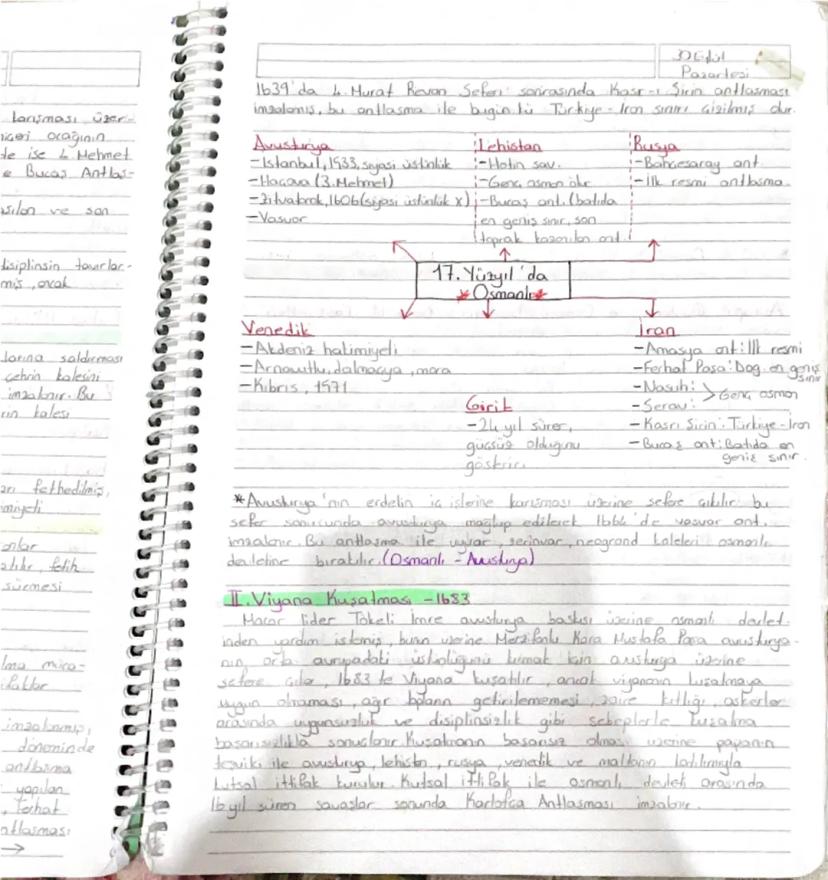 karışması üzer-
niçeri ocağının
de ise 4. Mehmet
e Bucaş Antlaş-
asılan ve son
disiplinsin tavırlar-
miş, ocak
larına saldırması
şehrin kalesini
imzalanır. Bu
rın kalesi
arı fethedilmiş,
miyeti
onlar
atılır, fetih
sürmesi
lma müca-
ifaklar
imzalanmış,
döneminde
antlaşma
yapılan
, Ferhat
ntlaşması
→
30 Eylül
Pazartesi
1639'da 4. Murat Revan Seferi sonrasında Kasr-ı Şirin antlaşması
imzalamış, bu antlaşma ile bugün kü Türkiye-İran sınırı çizilmiş olur.
Avusturya
-İstanbul, 1533, siyasi üstünlük
-Haçova (3. Mehmet)
-Zitvatorok, 1606 (siyasi üstünlük x)
-Vasvar
Lehistan
-Hotin sav.
-Genç osman ölür
-Bucaş ant. (batıda
en geniş sınır, son
toprak kazanılan ant.
Rusya
-Bahçesaray ant.
-İlk resmi antlaşma.
17. Yüzyıl'da
*Osmanlı*
Venedik
-Akdeniz hakimiyeti
-Arnavutlu, dalmaçya, mora
-Kıbrıs, 1571
Girit
-24 yıl sürer,
güçsüz olduğunu
gösterir.
İran
-Amasya ant: İlk resmi
-Ferhat Paşa: Doğ. en geniş sınır
-Nasuh:
-Serav: > Genç osman
-Kasrı Şirin: Türkiye-İran
-Bucaş ant: Batıda en
geniş sınır.
*Avusturya'nın erdelin iç işlerine karışması üzerine sefere çıkılır bu
sefer sonucunda avusturya mağlup edilerek 1664'de vasvar ant.
imzalanır. Bu antlaşma ile uyvar, serinvar, neogrand kaleleri osmanlı
devletine bırakılır. (Osmanlı - Avusturya)
II. Viyana Kuşatması -1683
Macar lider Tökeli İmre avusturya baskısı üzerine osmanlı devlet-
inden yardım istemiş, bunun üzerine Merzifonlu Kara Mustafa Paşa avusturya-
nın orta avrupadaki üstünlüğünü kırmak için avusturya üzerine
sefere çıkar, 1683 te Viyana kuşatılır, ancak viyananın kuşatmaya
uygun olmaması, ağır topların getirilememesi, zaire kıtlığı, askerler
arasında uygunsuzluk ve disiplinsizlik gibi sebeplerle kuşatma
başarısızlıkla sonuçlanır. Kuşatmanın başarısız olması üzerine papanın
teşviki ile avusturya, lehistan, rusya, venedik ve maltanın katılımıyla
kutsal ittifak kurulur. Kutsal ittifak ile osmanlı devleti arasında
16 yıl süren savaşlar sonunda Karlofça Antlaşması imzalanır.